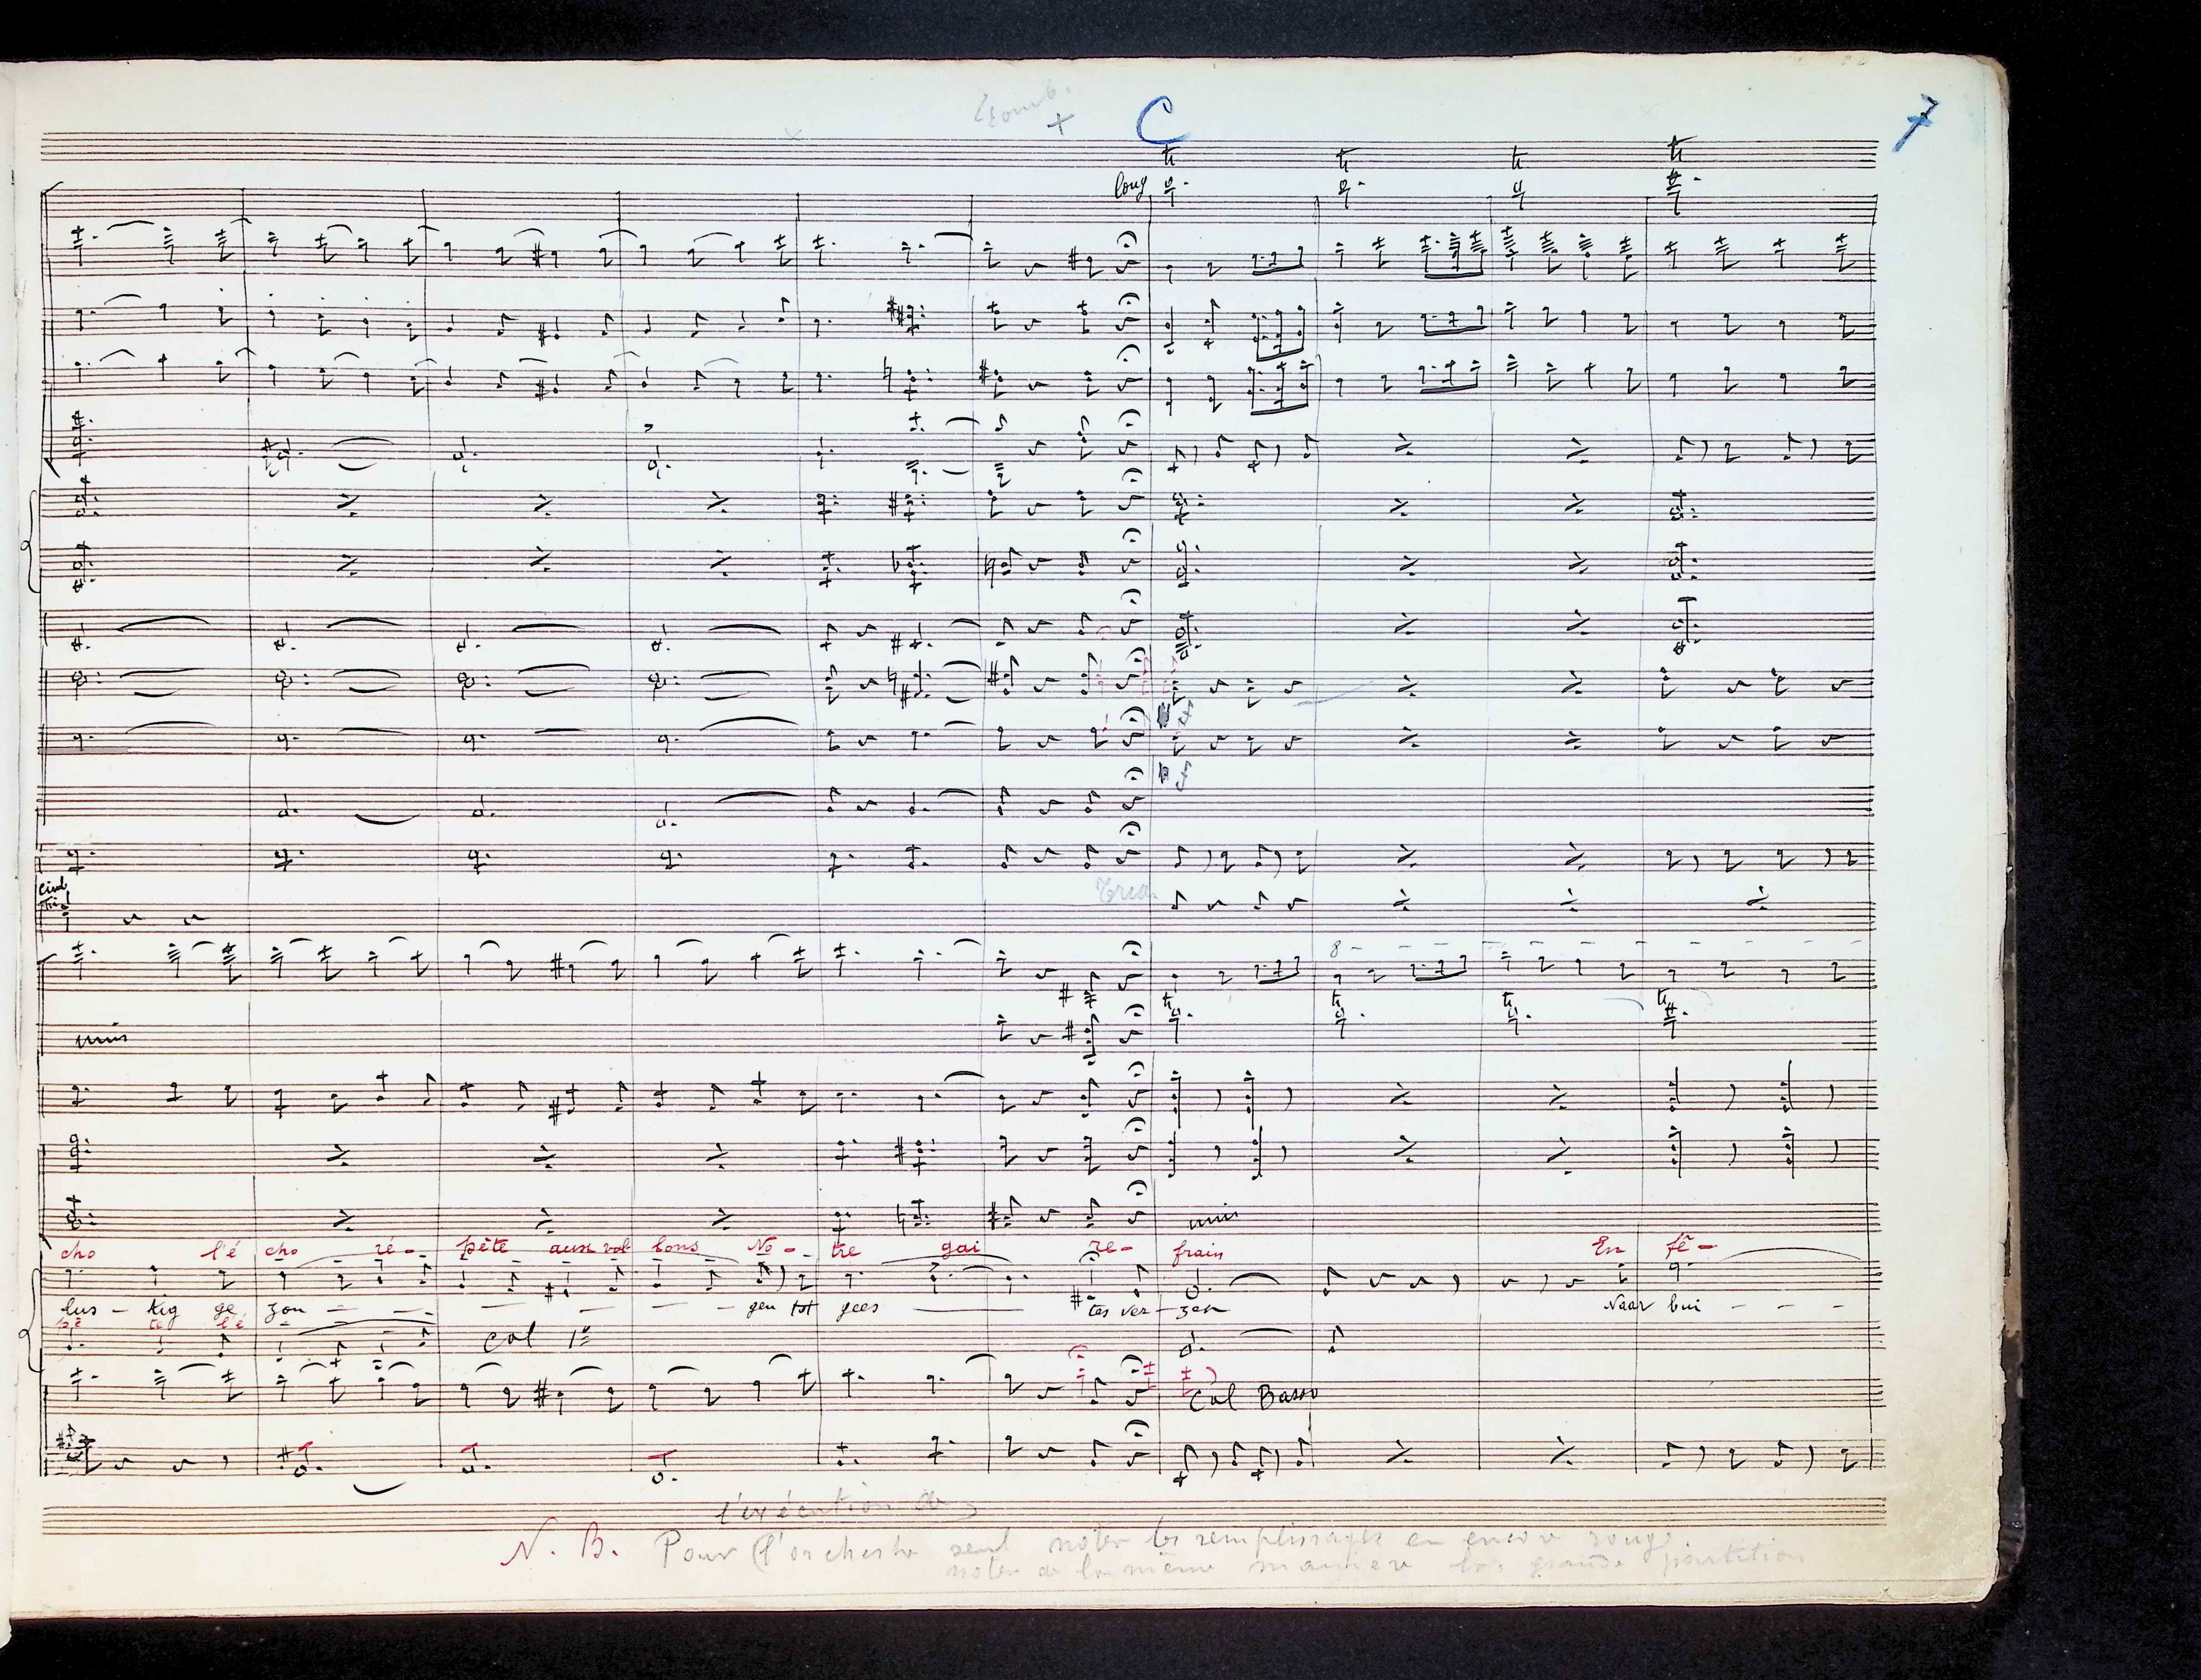 Tromb.
+
C
7
long
tr tr tr tr
Cimb
Tri
Tria
8
tr tr tr tr
unis
unis
cho l'é cho ré- pète aux val lons No- tre gai re- frain En fê-
lus - tig ge zon - - - - - - - - gen tot gees tes ver - zen Naar bui - - -
pè te l'é
Col 1º
Col Basso
l'exécution de
N. B. Pour (l'orchestre seul noter les remplissages en encre rouge
noter de la même manière la grande partition